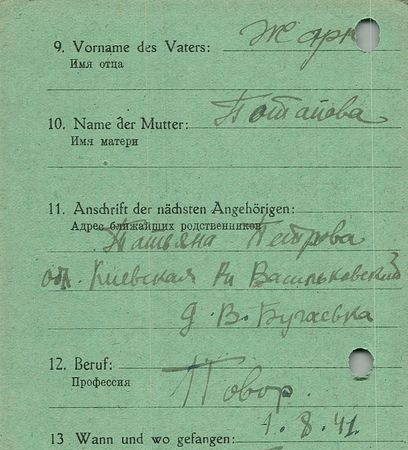 9. Vorname des Vaters:
Имя отца
10. Name der Mutter: Потапова
Имя матери
11. Anschrift der nächsten Angehörigen:
Адрес ближайших родственников
Татьяна Петрова
обл. Киевская Васильковский
д. В. Бугаевка
12. Beruf:
Профессия
Повор.
1.8.41.
13 Wann und wo gefangen: